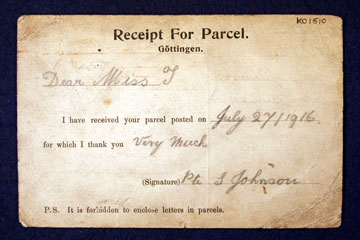 KO1510
Receipt For Parcel.
Göttingen.
Dear Miss T
I have received your parcel posted on July 27/1916.
for which I thank you Very Much
(Signature) Pte S Johnson
P.S. It is forbidden to enclose letters in parcels.